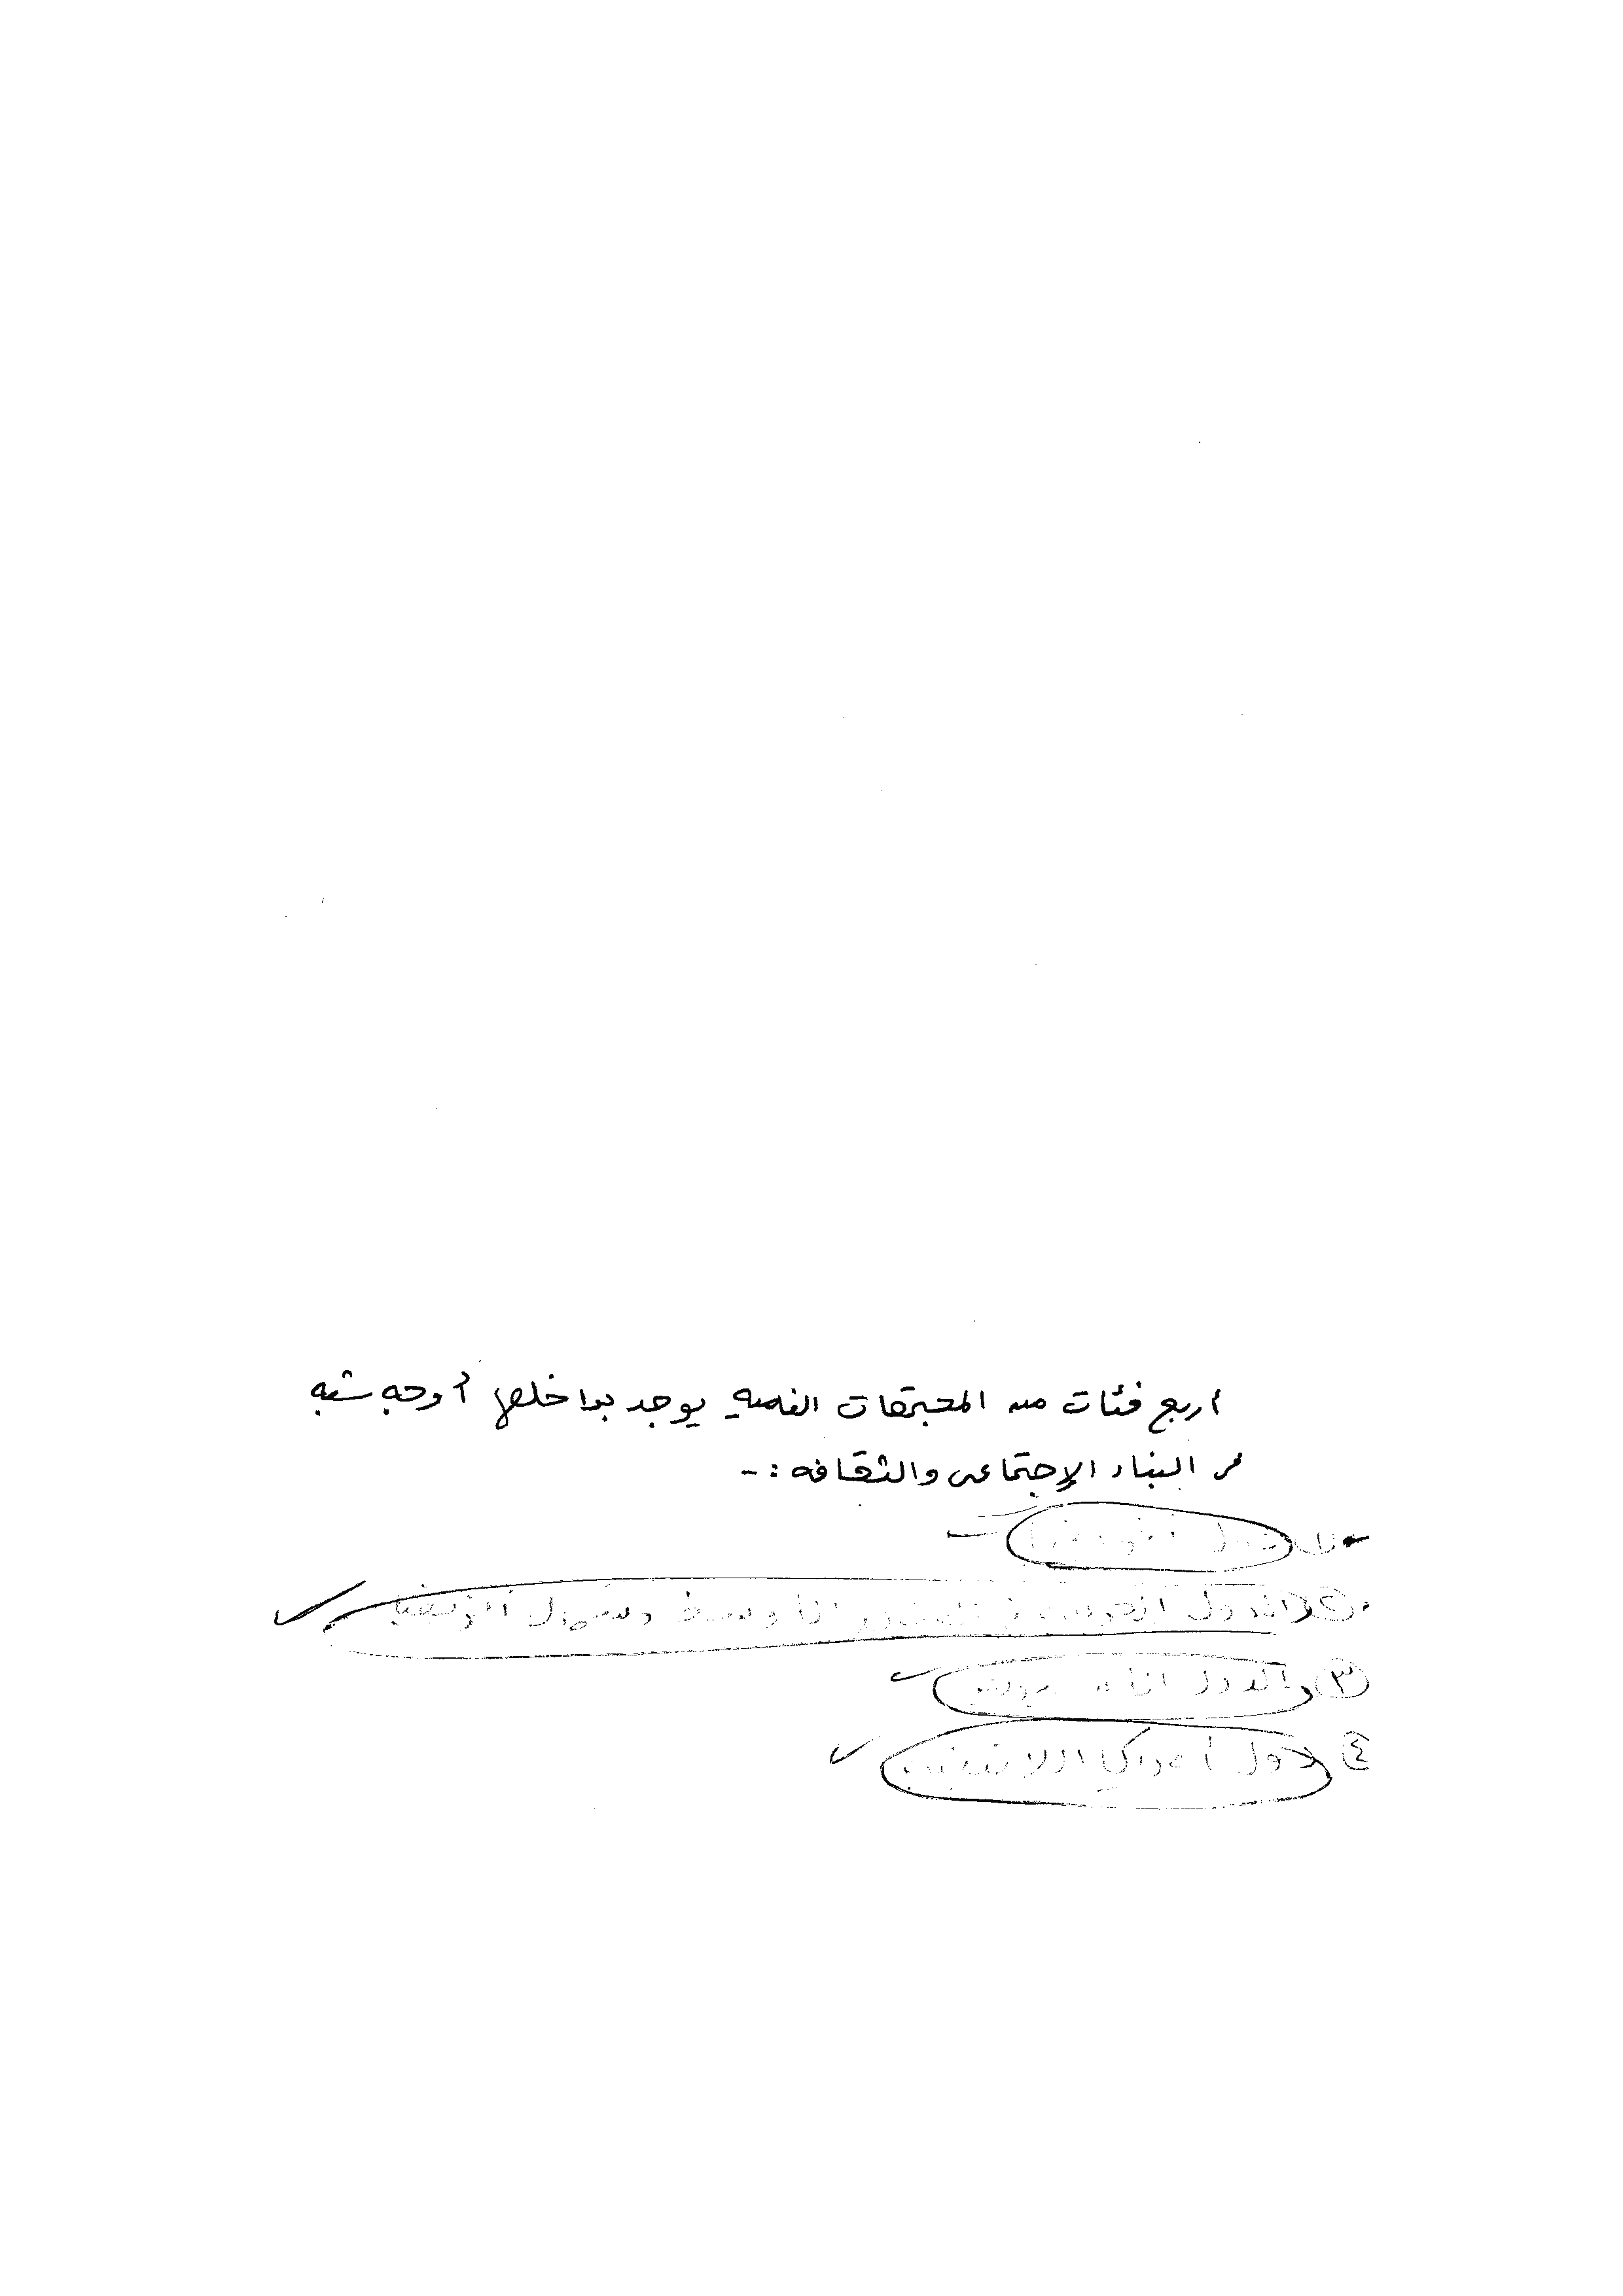 أربع فئات من المجتمعات النامية يوجد بداخلها أوجه شبه
فى البناء الإجتماعى والثقافه :-
دول أفريقيا
② الدول العربية فى الشرق الأوسط وشمال أفريقيا
③ الدول الآسيوية
④ دول أمريكا اللاتينية